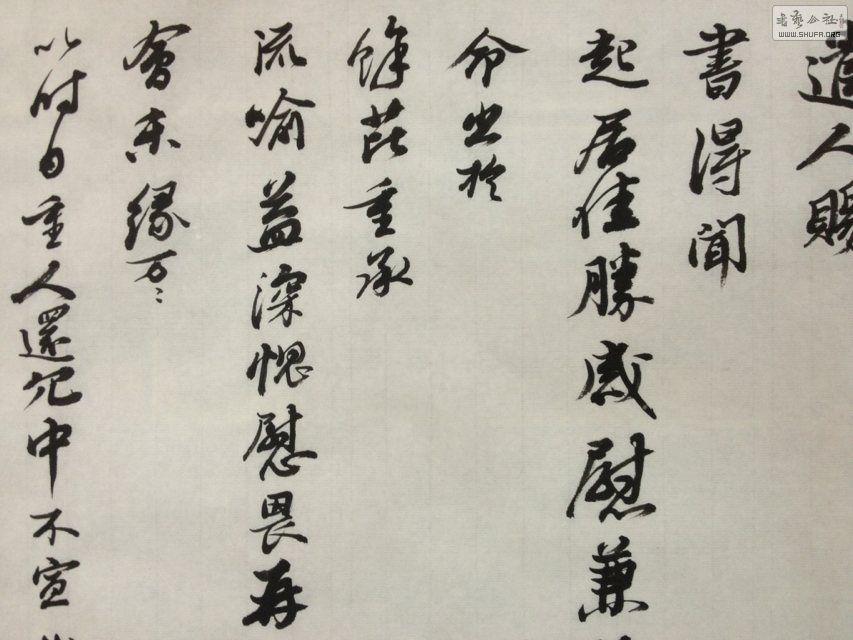 遣人賜
書得聞
起居佳勝感慰兼
命出於
餘芘重承
流喻益深愧慰畏再
會未緣萬〻
以時自重人還冗中不宣
書藝公社
WWW.SHUFA.ORG